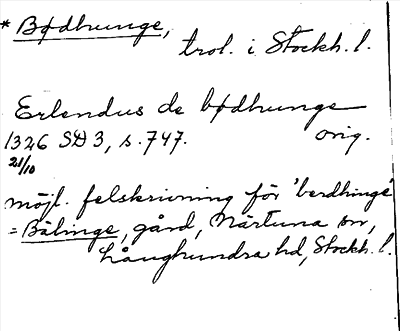 * Bødhunge,
trol. i Stockh. l.
Erlendus de bødhunge
1326 SD 3, s. 747. orig.
21/10
möjl. felskrivning för 'berdhinge'
= Bälinge, gård, Närtuna sn,
Långhundra hd, Stockh. l.